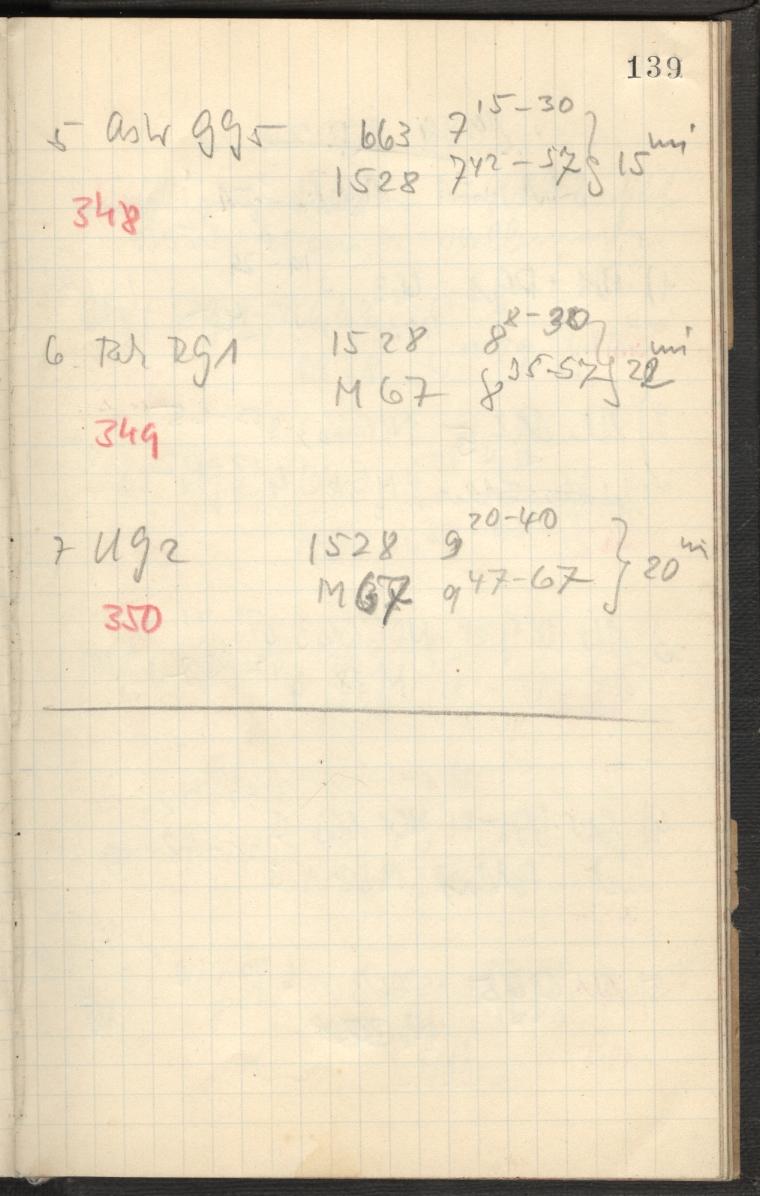 139
5 Astr GG5 663 7 15-30
1528 7 42-57 } 15 mi
348
6 RG1 1528 8 8-30
M 67 8 35-57 } 22 mi
349
7 UG2 1528 9 20-40
M 67 9 47-67 } 20 mi
350